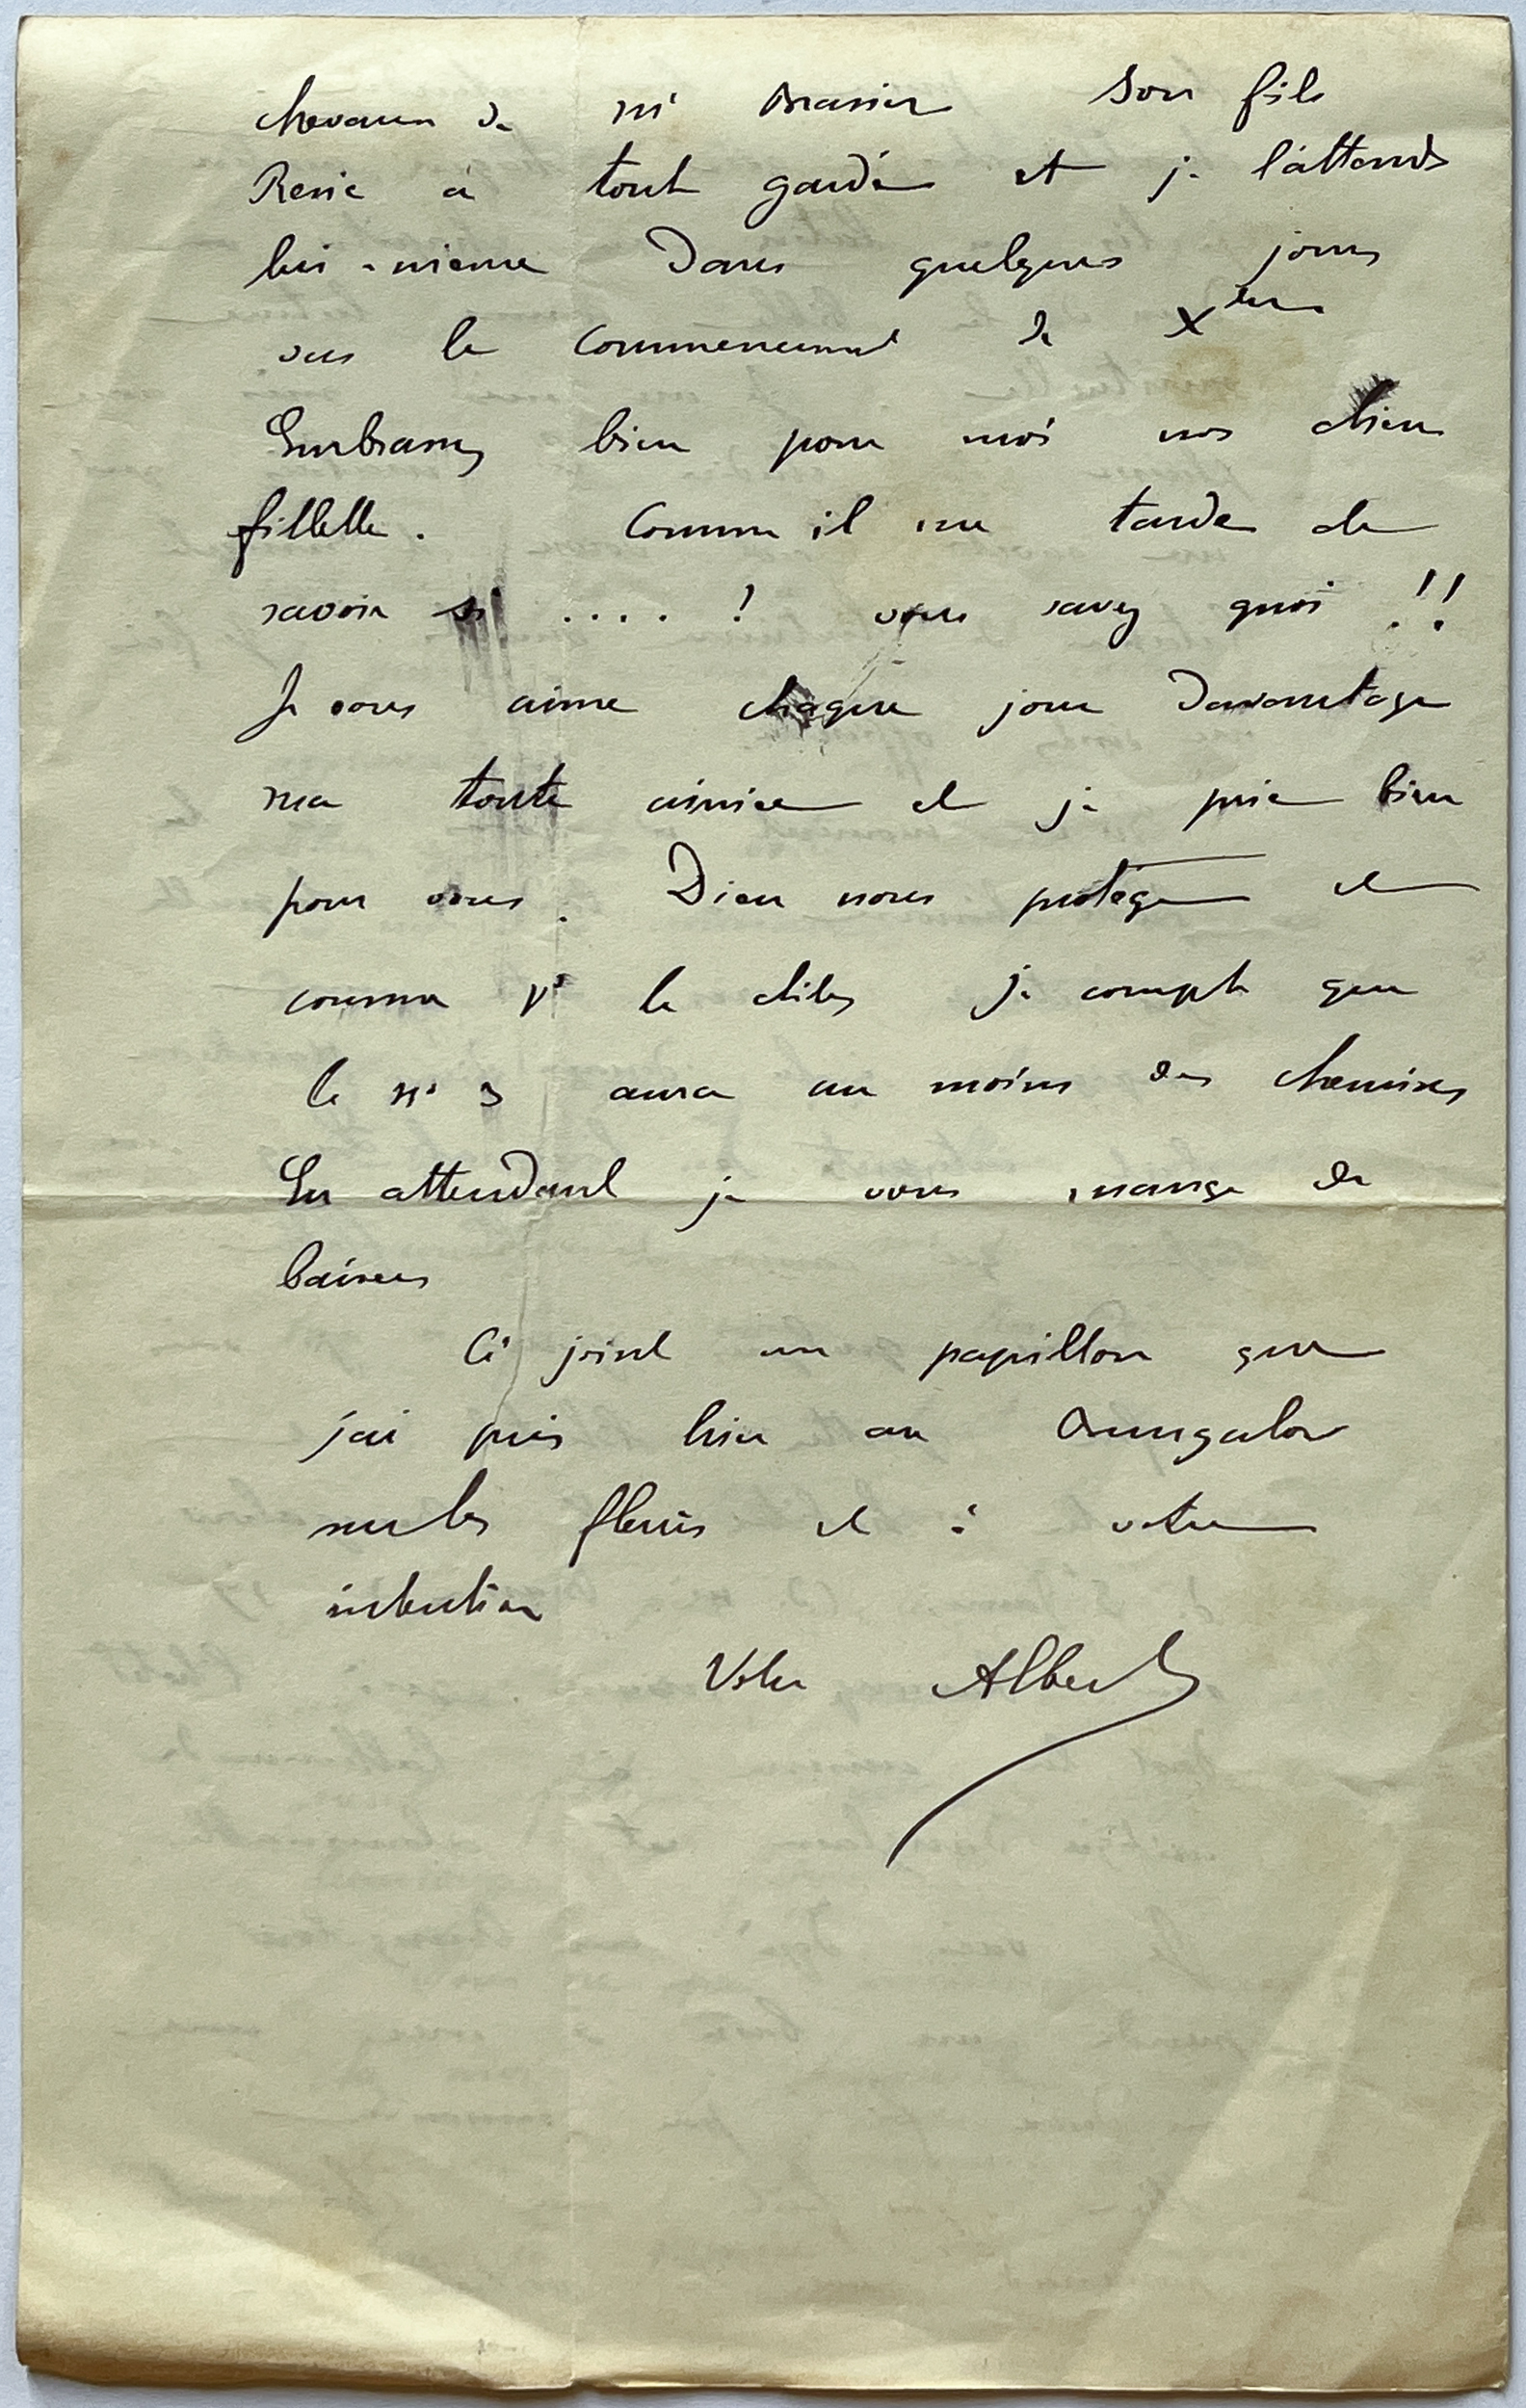 chevaux de Mr Brasier Son fils
René a tout gardé et je l'attends
lui-même Dans quelques jours
vers le commencement de Xbre
Embrassez bien pour moi nos chères
fillettes. Comme il me tarde de
savoir si .... ! vous savez quoi !!
Je vous aime chaque jour Davantage
ma toute aimée et je prie bien
pour vous. Dieu nous protège et
comme vs le dites je compte que
le no 3 aura au moins des chemises
En attendant je vous mange de
baisers
Ci joint un papillon que
j'ai pris hier au Bungalow
sur les fleurs et à votre
intention
Votre Albert